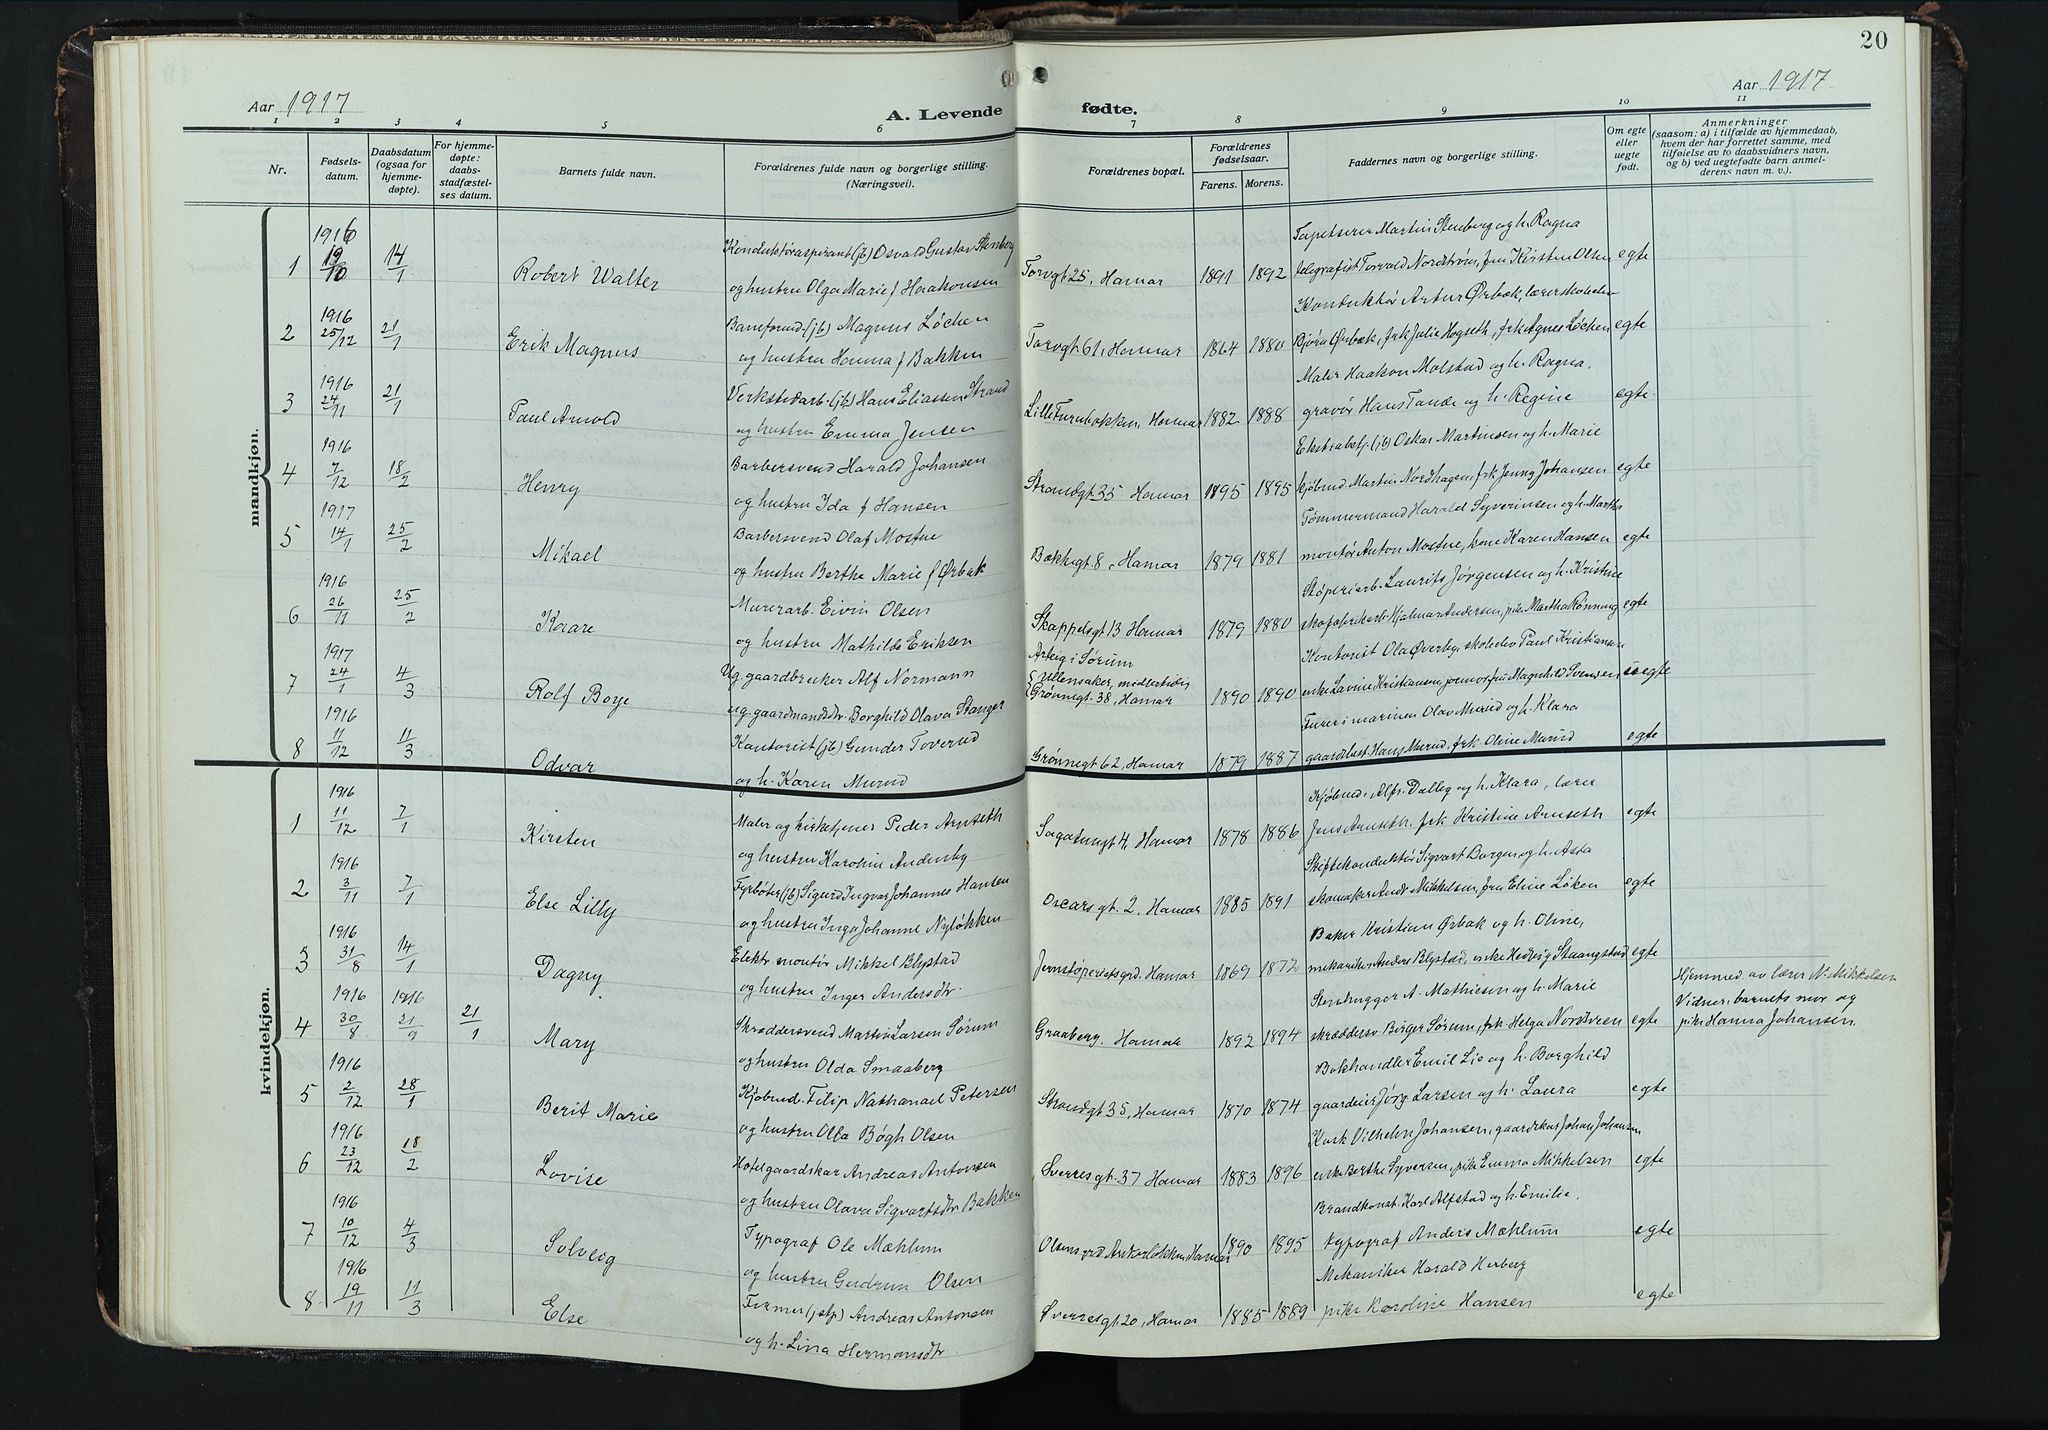 20
Aar 1917
Aar 1917
A. Levende fødte.
1 2 3 4 5 6 7 8 9 10 11
Nr.
Fødsels-
datum.
Daabsdatum
(ogsaa for
hjemme-
døpte).
For hjemme-
døpte:
daabs-
stadfæstel-
ses datum.
Barnets fulde navn.
Forældrenes fulde navn og borgerlige stilling.
(Næringsvei).
Forældrenes bopæl.
Forældrenes
fødselsaar.
Farens. Morens.
Faddernes navn og borgerlige stilling.
Om egte
eller
uegte
født.
Anmerkninger
(saasom: a) i tilfælde av hjemmedaab,
hvem der har forrettet samme, med
tilføielse av to daabsvidners navn,
og b) ved uegtefødte barn anmel-
derens navn m. v.).
mandkjøn.
1916 Tapetserer Martin Stenberg og h. Ragna
1 19/10 14/1 Robert Walter Konduktøraspirant (jb) Osvald Gustav Stenberg Torvgt 25, Hamar 1891 1892 telegrafist Torvald Nordstrøm, fru Kirsten Olsen egte
og hustru Olga Marie f Haakonsen Konduktør Artur Ørbæk, lærerskoleelev
1916
2 25/12 21/1 Erik Magnus Baneformd. (jb) Magnus Løchen Torvgt. 61, Hamar 1864 1880 Bjørn Ørbæk, frk Julie Hogseth, frk Agnes Løchen egte
og hustru Hanna f Bakken Maler Haakon Molstad og h. Ragna.
1916
3 24/11 21/1 Paul Arnold Verkstedarb. (jb) Hans Eliassen Strand Lille Turubakken, Hamar 1882 1888 gravør Hans Tande og h. Regine egte
og hustru Emma Jensen Ekstrabetj. (jb) Oskar Martinsen og h. Marie
1916
4 7/12 18/2 Henry Barbersvend Harald Johansen Strandgt. 35 Hamar 1895 1895 kjøbmd. Martin Nordhagen, frk Jenny Johansen egte
og hustru Ida f Hansen Tømmermand Harald Syverinsen og h. Martha
1917
5 14/1 25/2 Mikael Barbersvend Olaf Mostue Bækkegt. 8, Hamar 1879 1881 montør Anton Mostue, kone Karen Hansen egte
og hustru Berthe Marie f Ørbak Støperiarb. Laurits Jørgensen og h. Kristine
1916
6 26/11 25/2 Kaare Murerarb. Eivin Olsen Skappelsgt 13 Hamar 1879 1880 skofabrikarb. Hjalmar Andersen, pike Martha Rønning egte
og hustru Mathilde Eriksen Kontorist Ola Øverby, skoleelev Paul Kristiansen
1917 Arteig i Sørum
7 24/1 4/3 Rolf Boye Ug. gaardbruker Alf Normann Ullensaker, midlertidig
Grønnegt. 38, Hamar 1890 1890 enke Lavine Kristiansen, jormorfru Magnhild Svensen uegte
ug. gaardmandsdtr. Borghild Olava Stanger Furer i marinen Olav Murud og h. Klara
1916
8 11/12 11/3 Odvar Kontorist (jb) Gunder Toverud Grønnegt 62, Hamar 1879 1887 gaardbest. Hans Murud, frk. Oline Murud egte
og h. Karen Murud
kvindekjøn.
1916 Kjøbmd. Alfr. Dalby og h. Klara, lærer
1 11/12 7/1 Kirsten Maler og kirketjener Peder Arnseth Sagatungt 4, Hamar 1878 1886 Jens Arnseth. frk Kristine Arnseth egte
og hustru Karoline Anderby Skiftekonduktør Sigvart Borgen og h. Asta
1916
2 3/11 7/1 Else Lilly Fyrbøter (jb) Sigurd Ingvar Johannes Hansen Oscars gt. 2, Hamar 1885 1891 skomaker Andr. Mikkelsen, fru Eline Løken egte
og hustru Inga Johanne Nyløkken Baker Kristian Ørbak og h. Oline,
1916
3 31/8 14/1 Dagny Elektr. montør Mikkel Blystad Jernstøperietsgrd. Hamar 1869 1872 mekaniker Anders Blystad, enke Hedvig Staangstad egte
og hustru Inger Andersdtr. Stenhugger A. Mathiesen og h. Marie
1916 1916
4 30/8 21/9 21/1 Mary Skræddersvend Martin Larsen Sørum Graaberg, Hamar 1892 1894 skræddersv. Birger Sørum, frk Helga Nordveen egte
Hjemmed av lærer N. Mikkelsen
Vidner: barnets mor og
pike Hanna Johansen.
og hustru Olda Smaaberg Bokhandler Emil Lie og h. Borghild
1916
5 2/12 28/1 Berit Marie Kjøbmd. Filip Nathanael Petersen Strandgt 35, Hamar 1870 1874 gaardeier Jørg. Larsen og h. Laura egte
og hustru Olla Bøgh Olsen Kusk Vilhelm Johansen, gaardskar Johan Johansen
1916
6 23/12 18/2 Lovise Hotelgaardskar Andreas Antonsen Sverres gt. 37 Hamar 1883 1896 enke Berthe Syversen, pike Emma Mikkelsen egte
og hustru Olava Sigvartsdtr Bakken Brandkonst. Karl Alfstad og h. Emilie.
1916
7 10/12 4/3 Solveig Typograf Ole Mæhlum Olsens grd Ankerløkken, Hamar 1890 1895 typograf Anders Mæhlum egte
og hustru Gudrun Olsen Mekaniker Harald Herberg
1916
8 19/11 11/3 Else Former (jstp) Andreas Antonsen Sverresgt 20, Hamar 1885 1889 pike Karoline Hansen egte
og h. Lina Hermansdtr